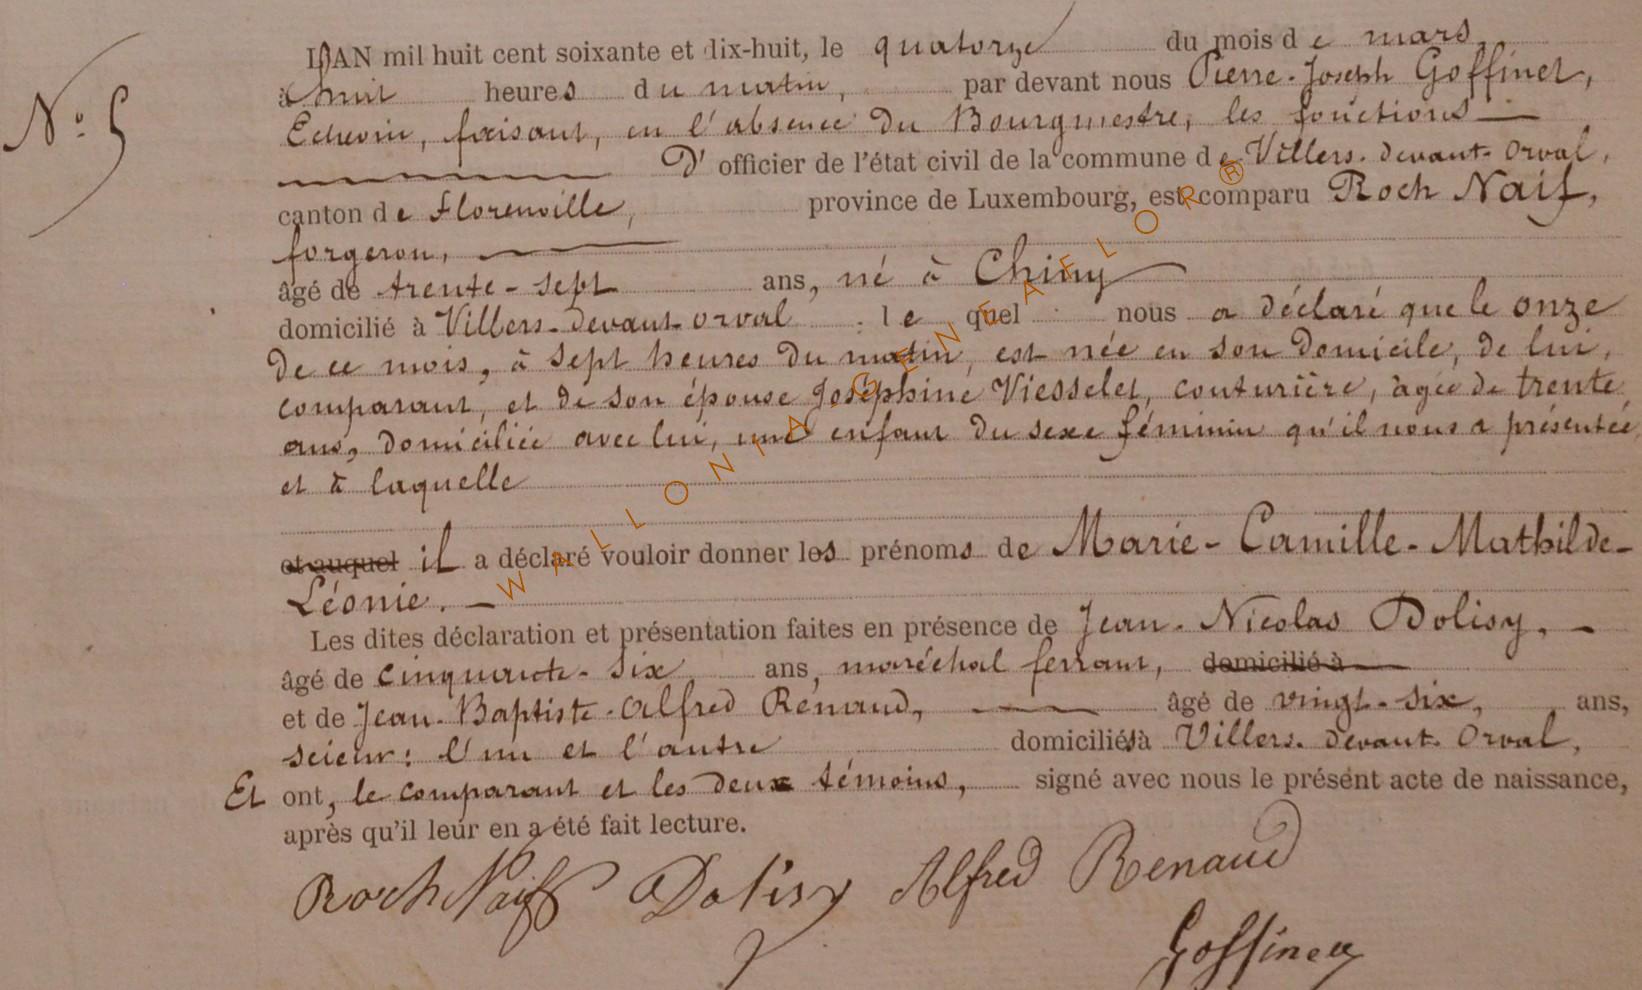 N.o 5
L'AN mil huit cent soixante et dix-huit, le quatorze du mois de mars,
à huit heures du matin, par devant nous Pierre-Joseph Goffinet,
Echevin, faisant, en l'absence du Bourgmestre, les fonctions
D'officier de l'état civil de la commune de Villers-devant-Orval,
canton de Florenville, province de Luxembourg, est comparu Roch Naif,
forgeron,
âgé de trente-sept ans, né à Chiny
domicilié à Villers-devant-Orval . lequel nous a déclaré que le onze
de ce mois, à sept heures du matin, est née en son domicile, de lui,
comparant, et de son épouse Joséphine Viesselet, couturière, âgée de trente
ans, domiciliée avec lui, une enfant du sexe féminin qu'il nous a présentée,
et à laquelle
et auquel il a déclaré vouloir donner les prénoms de Marie-Camille-Mathilde-
Léonie.
Les dites déclaration et présentation faites en présence de Jean-Nicolas Dolisy,
âgé de cinquante-six ans, maréchal ferrant, domicilié à
et de Jean-Baptiste-Alfred Renaud, âgé de vingt-six, ans,
scieur; l'un et l'autre domiciliés à Villers-devant-Orval,
Et ont, le comparant et les deux témoins, signé avec nous le présent acte de naissance,
après qu'il leur en a été fait lecture.
Roch Naif Dolisy Alfred Renaud
Goffinet
WALLONIA-GENEAFLOR®